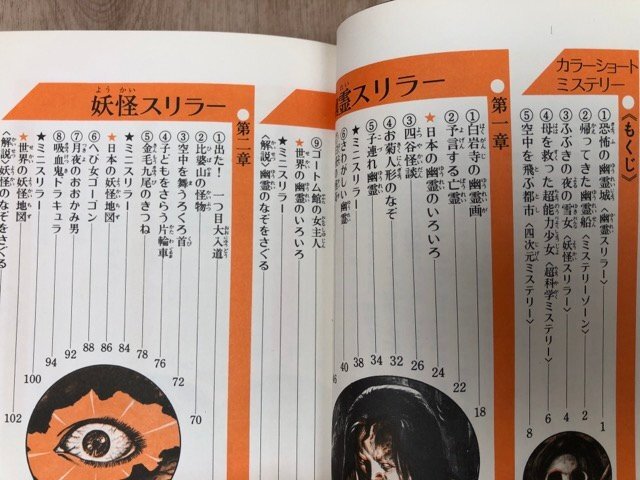 《もくじ》
カラーショート
ミステリー
①恐怖の幽霊城〈幽霊スリラー〉
1
②帰ってきた幽霊船〈ミステリーゾーン〉
2
③ふぶきの夜の雪女〈妖怪スリラー〉
4
④母を救った超能力少女〈超科学ミステリー〉
6
⑤空中を飛ぶ都市〈四次元ミステリー〉
8
第一章
霊スリラー
①白岩寺の幽霊画
18
②予言する亡霊
22
★日本の幽霊のいろいろ
24
③四谷怪談
26
④お菊人形のなぞ
32
★ミニスリラー
36
⑤子連れ幽霊
38
⑥さわがしい幽霊
40
⑨ゴートム館の女主人
★世界の幽霊のいろいろ
★ミニスリラー
〈解説〉幽霊のなぞをさぐる
第二章
妖怪スリラー
①出た!一つ目大入道
70
②比婆山の怪物
72
③空中を舞うろくろ首
④子どもをさらう片輪車
78
⑤金毛九尾のきつね
★ミニスリラー
84
★日本の妖怪地図
86
⑥へび女ゴーゴン
88
⑦月夜のおおかみ男
92
⑧吸血鬼ドラキュラ
94
★ミニスリラー
100
★世界の妖怪地図
102
〈解説〉妖怪のなぞをさぐる